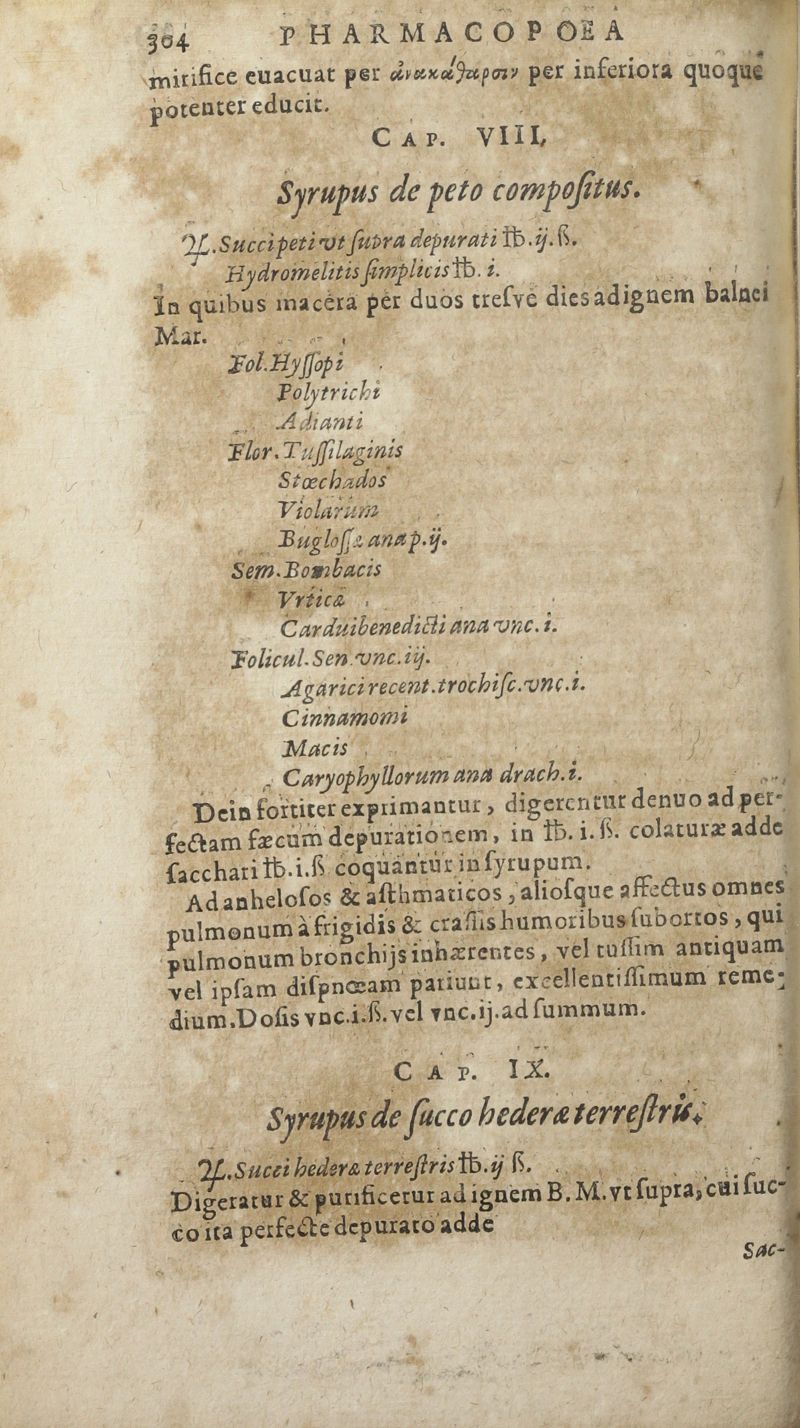 304 PHARMACOPOEA
mirifice euacuat per ἀνακάθαρσιν per inferiora quoque
potenter educit.
CAP. VIII,
Syrupus de peto compoſitus.
℞.Succi peti vt ſupra depurati ℔.ij.ß.
Hydromelitis ſimplicis ℔. i.
In quibus macera per duos treſve dies ad ignem balnei
Mar.
Fol.Hyſſopi
Polytrichi
Adianti
Flor.Tuſſilaginis
Stœchados
Violarum
Bugloſſæ ana p.ij.
Sem.Bombacis
Vrticæ
Cardui benedicti ana vnc.i.
Folicul.Sen.vnc.iij.
Agarici recent.trochiſc.vnc.i.
Cinnamomi
Macis
Caryophyllorum ana drach.i.
Dein fortiter exprimantur, digerentur denuo ad per-
fectam fæcum depurationem, in ℔.i.ß. colaturæ adde
ſacchari ℔.i.ß coquantur in ſyrupum.
Ad anheloſos & aſthmaticos, alioſque affectus omnes
pulmonum à frigidis & craſſis humoribus ſubortos, qui
pulmonum bronchijs inhærentes, vel tuſſim antiquam
vel ipſam diſpnœam pariunt, excellentiſſimum reme-
dium.Doſis vnc.i.ß.vel vnc.ij.ad ſummum.
CAP. IX.
Syrupus de ſucco hederæ terreſtris.
℞.Succi hederæ terreſtris ℔.ij ß.
Digeratur & purificetur ad ignem B.M.vt ſupra, cui ſuc-
co ita perfecte depurato adde
Sac-